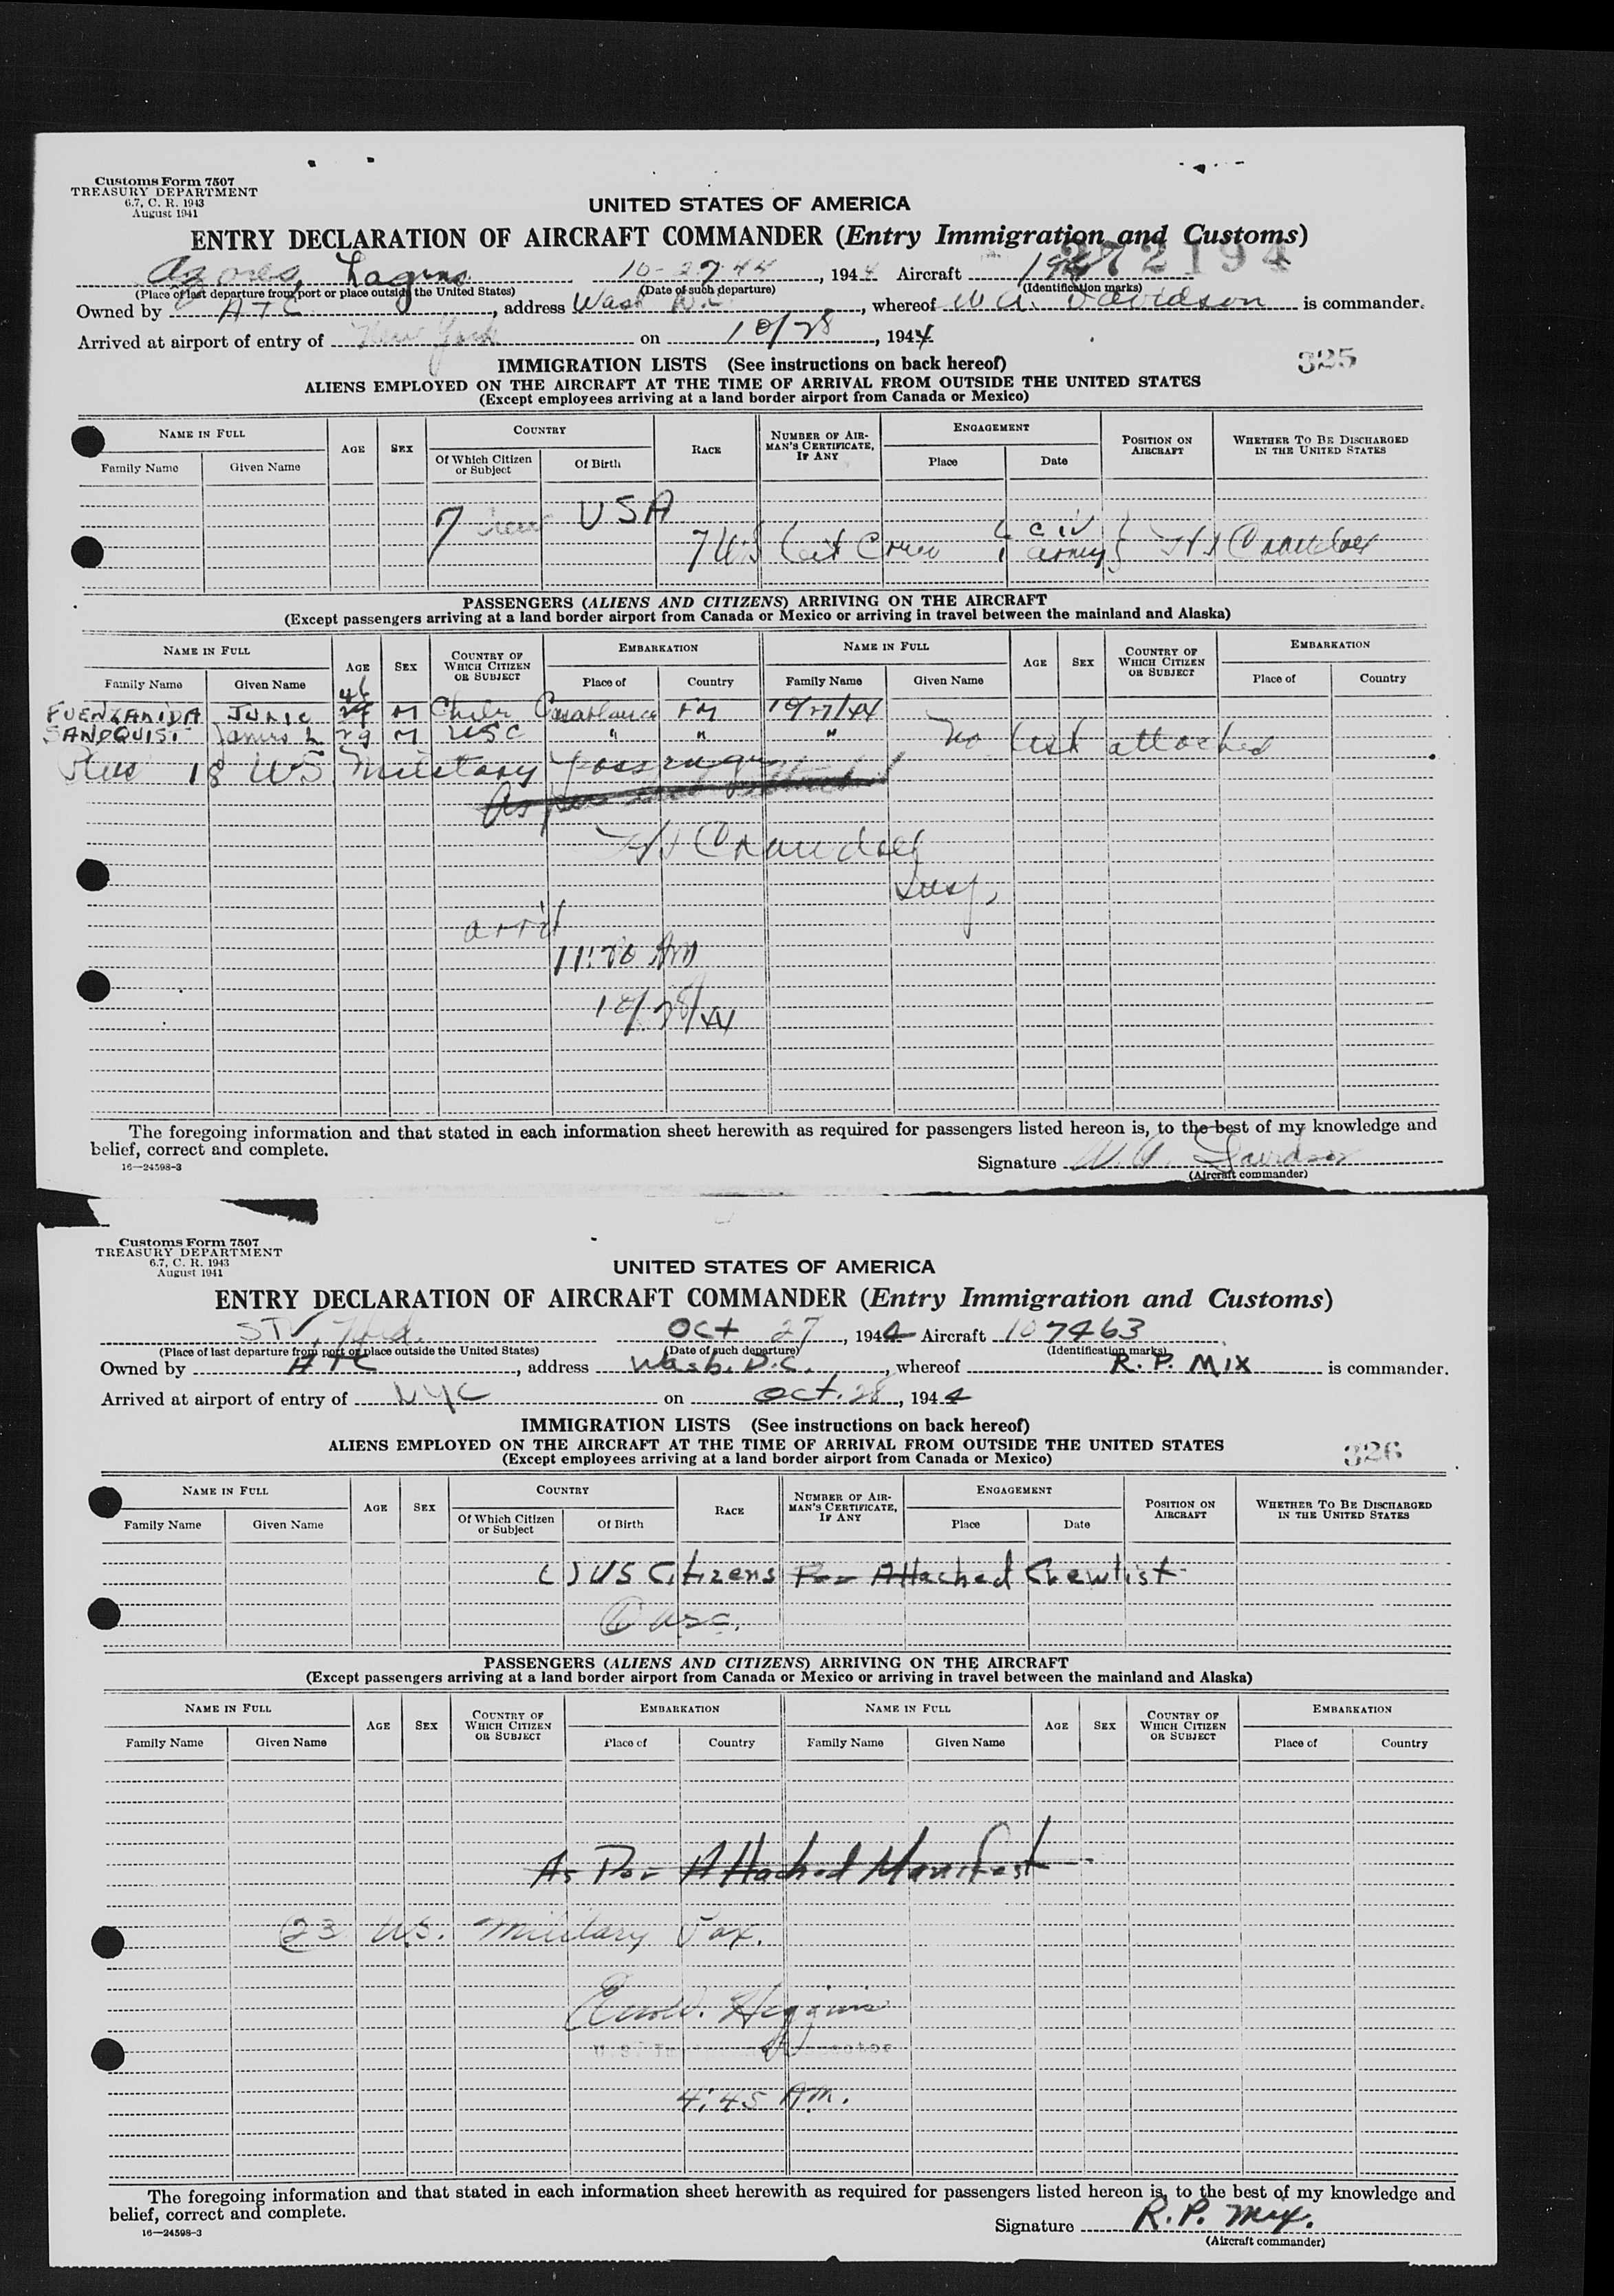 Customs Form 7507
TREASURY DEPARTMENT
6.7, C. R. 1943
August 1941
UNITED STATES OF AMERICA
ENTRY DECLARATION OF AIRCRAFT COMMANDER (Entry Immigration and Customs)
Azores, Lagens 10-27-44, 1944 Aircraft 272194
(Place of last departure from port or place outside the United States) (Date of such departure) (Identification marks)
Owned by ATC, address Wash D.C., whereof W A. Davidson is commander.
Arrived at airport of entry of New York on 10/28, 1944
325
IMMIGRATION LISTS (See instructions on back hereof)
ALIENS EMPLOYED ON THE AIRCRAFT AT THE TIME OF ARRIVAL FROM OUTSIDE THE UNITED STATES
(Except employees arriving at a land border airport from Canada or Mexico)
NAME IN FULL AGE SEX COUNTRY RACE NUMBER OF AIRMAN'S CERTIFICATE, IF ANY ENGAGEMENT POSITION ON AIRCRAFT WHETHER TO BE DISCHARGED IN THE UNITED STATES
Family Name Given Name Of Which Citizen or Subject Of Birth Place Date
7 Crew USA
7 US Cit Crew { Civ Army } H J Crandall
PASSENGERS (ALIENS AND CITIZENS) ARRIVING ON THE AIRCRAFT
(Except passengers arriving at a land border airport from Canada or Mexico or arriving in travel between the mainland and Alaska)
NAME IN FULL AGE SEX COUNTRY OF WHICH CITIZEN OR SUBJECT EMBARKATION NAME IN FULL AGE SEX COUNTRY OF WHICH CITIZEN OR SUBJECT EMBARKATION
Family Name Given Name Place of Country Family Name Given Name Place of Country
46
FUENZALIDA JULIO M Chile Casablanca FM 10/27/44
SANDQUIST James L 29 M USC " " " No list attached
Plus 18 US Military Passengers
As per attached
H J Crandall
Insp.
arr'd
11:20 AM
10/28/44
The foregoing information and that stated in each information sheet herewith as required for passengers listed hereon is, to the best of my knowledge and
belief, correct and complete.
16—24598-3
Signature W. A. Davidson
(Aircraft commander)
Customs Form 7507
TREASURY DEPARTMENT
6.7, C. R. 1943
August 1941
UNITED STATES OF AMERICA
ENTRY DECLARATION OF AIRCRAFT COMMANDER (Entry Immigration and Customs)
STV, Nfld. Oct 27, 1944 Aircraft 107463
(Place of last departure from port or place outside the United States) (Date of such departure) (Identification marks)
Owned by ATC, address Wash. D.C., whereof R. P. MIX is commander.
Arrived at airport of entry of NYC on Oct. 28, 1944
326
IMMIGRATION LISTS (See instructions on back hereof)
ALIENS EMPLOYED ON THE AIRCRAFT AT THE TIME OF ARRIVAL FROM OUTSIDE THE UNITED STATES
(Except employees arriving at a land border airport from Canada or Mexico)
NAME IN FULL AGE SEX COUNTRY RACE NUMBER OF AIRMAN'S CERTIFICATE, IF ANY ENGAGEMENT POSITION ON AIRCRAFT WHETHER TO BE DISCHARGED IN THE UNITED STATES
Family Name Given Name Of Which Citizen or Subject Of Birth Place Date
( ) US Citizens Per Attached Crewlist
USC.
PASSENGERS (ALIENS AND CITIZENS) ARRIVING ON THE AIRCRAFT
(Except passengers arriving at a land border airport from Canada or Mexico or arriving in travel between the mainland and Alaska)
NAME IN FULL AGE SEX COUNTRY OF WHICH CITIZEN OR SUBJECT EMBARKATION NAME IN FULL AGE SEX COUNTRY OF WHICH CITIZEN OR SUBJECT EMBARKATION
Family Name Given Name Place of Country Family Name Given Name Place of Country
As Per Attached Manifest
23 US. Military Pax.
Higgins
4:45 AM.
The foregoing information and that stated in each information sheet herewith as required for passengers listed hereon is, to the best of my knowledge and
belief, correct and complete.
16—24598-3
Signature R. P. Mix.
(Aircraft commander)